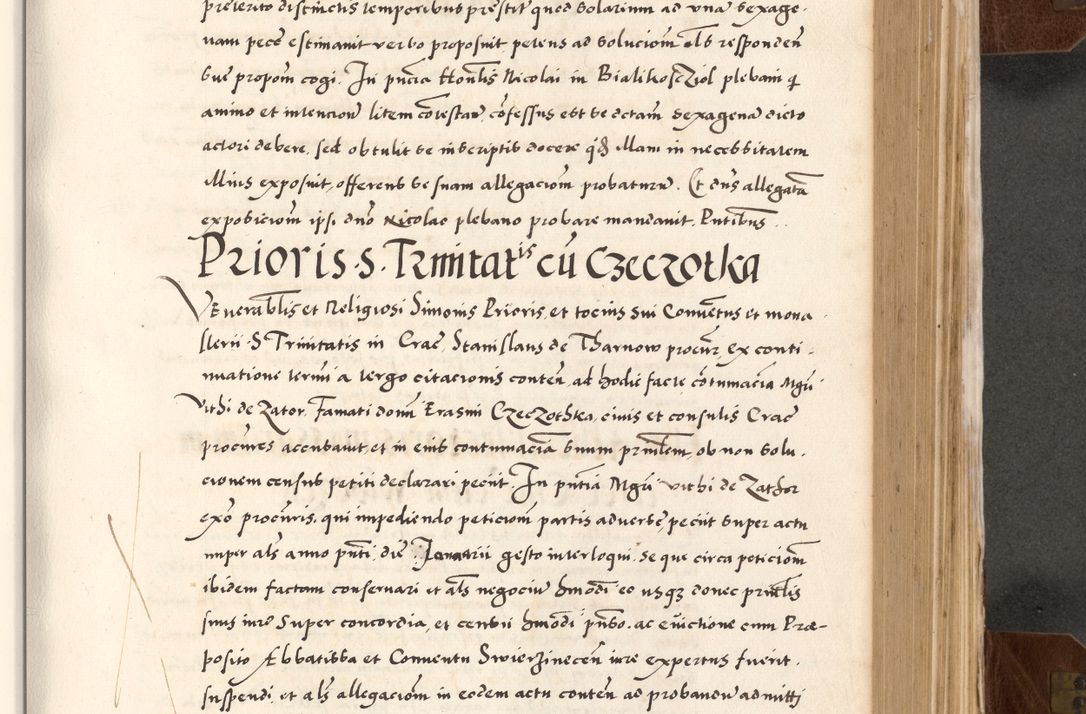 preterito distinctis temporibus prestit quod solarium ad una sexage
nam pecc estimavit verbo proposuit petens ad soluciom als responden
sue propom cogi. In pncia Honlis Nicolai in Bialikosczjol plebani q
animo et intencion litem contestan, confessus est se dictam sexagena dicto
actori debere, sed obtulit se in scriptis docere qd illam in necessitatem
illius exposuit, offerens se suam allegaciom probaturu. Et dns allegata
exposiciom ipsi dno Nicolao plebano probare mandavit. Pntibus
Prioris S. Trinitatis cu Czeczotka
Venerablis et Religiosi Simonis Prioris, et tocius sui Conventus et mona
sterii S Trinitatis in Crac, Stanislaus de Tharnow procur, ex conti
nuatione termi a tergo citacionis conten, ad hodie facte contumacia Mgri
Vithi de Zator, Famati domi Erasmi Czeczothka, civis et consulis Crac
procures accusavit, et in eius contumaciam suum prinlem ob non solu
cionem census petiti declarari peciit. In pntia Mgri vithi de Zathor
exo procuris, qui impediendo peticiom partis adverse, peciit super actu
nuper als anno pnti die Januarii gesto interloqui, se que circa peticiom
ibidem factam conservari et als negociu hmodi eo usqz donec prinlis
suus iure super concordia, et census hmodi pnso, ac evictione cum Præ-
posito Abbatissa et Conventu Swierzinecen iure expertus fuerit
suspendi, et als allegaciom in eodem actu conten ad probandu admitti